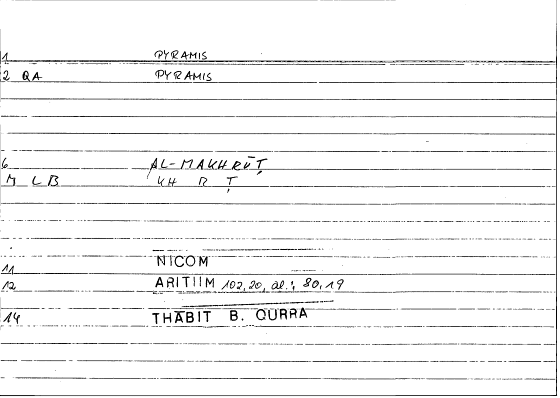 1 PYRAMIS
2 QA PYRAMIS
6 AL-MAKHRŪṬ
M LB KH R Ṭ
11 NICOM
12 ARITIIM 102,20, al.; 80,19
14 THĀBIT B. QURRA